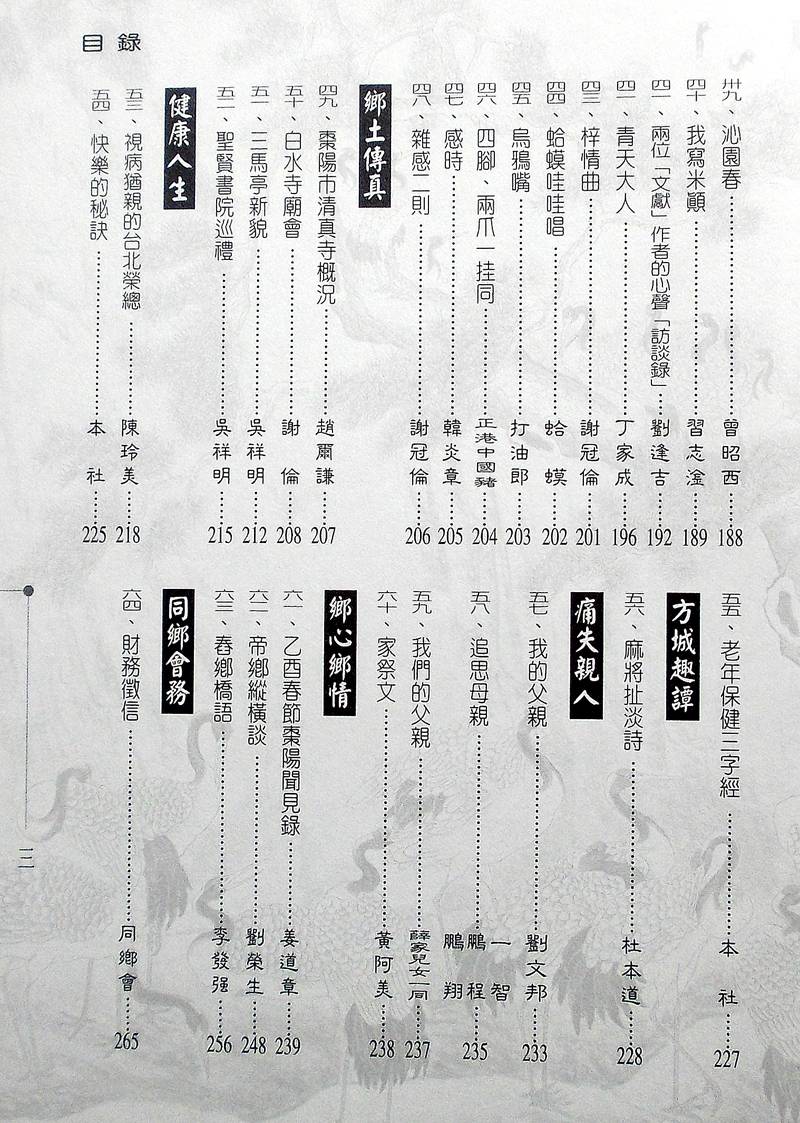 目錄
卅九、沁園春……曾昭西……188
四十、我寫米顛……習志淦……189
四一、兩位「文獻」作者的心聲「訪談錄」…劉逢吉……192
四二、青天大人……丁家成……196
四三、梓情曲……謝冠倫……201
四四、蛤蟆哇哇唱……蛤蟆……202
四五、烏鴉嘴……打油郎……203
四六、四腳、兩爪一挂同……正港中國豬……204
四七、感時……韓炎章……205
四八、雜感二則……謝冠倫……206
鄉土傳真
四九、棗陽市清真寺概況……趙爾謙……207
五十、白水寺廟會……謝倫……208
五一、三馬亭新貌……吳祥明……212
五二、聖賢書院巡禮……吳祥明……215
健康人生
五三、視病猶親的台北榮總……陳玲美……218
五四、快樂的秘訣……本社……225
五五、老年保健三字經……本社……227
方城趣譚
五六、麻將扯淡詩……杜本道……228
痛失親人
五七、我的父親……劉文邦……233
五八、追思母親……一智 鵬程 鵬翔……235
五九、我們的父親……薛家兒女一同……237
六十、家祭文……黃阿美……238
鄉心鄉情
六一、乙酉春節棗陽聞見錄……姜道章……239
六二、帝鄉縱橫談……劉榮生……248
六三、舂鄉橋語……李發强……256
同鄉會務
六四、財務徵信……同鄉會……265
三